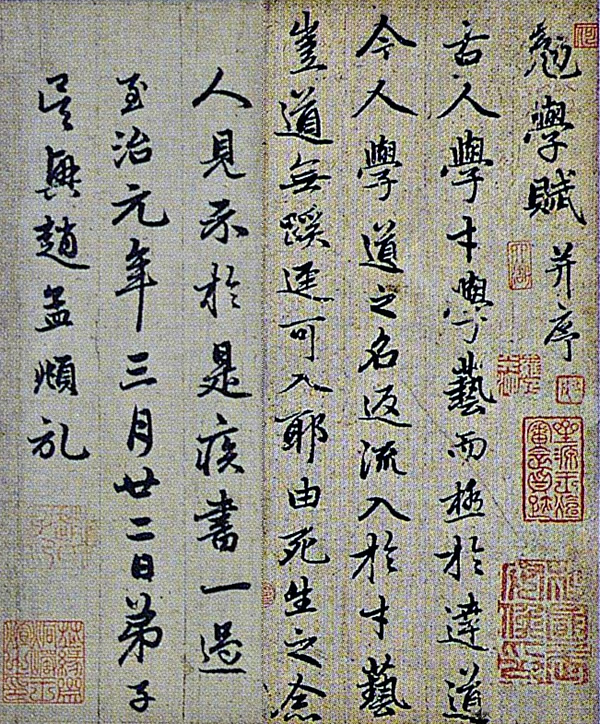 勉學賦 并序
古人學才學藝而極於達道
今人學道之名返流入於才藝
豈道無蹊逕可入耶由死生之念
人見示於是疾書一過
至治元年三月廿二日弟子
吳興趙孟頫